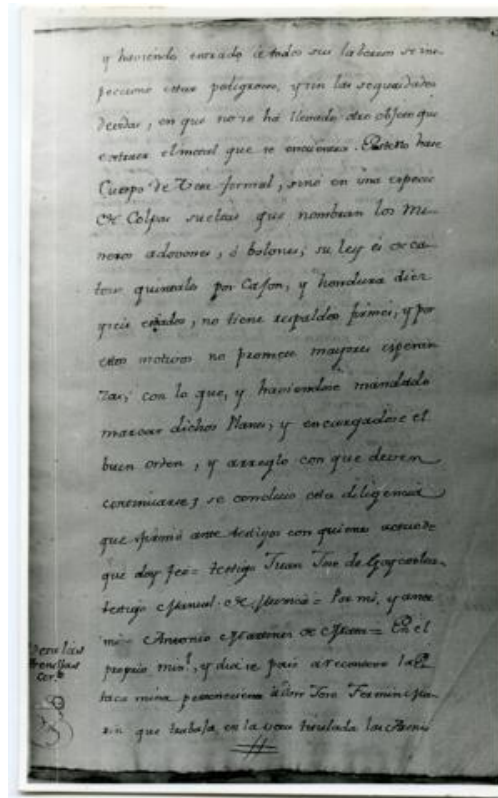 y haviendo entrado à todos sus labores se ins-
peccionó estar peligrosos, y sin las seguridades
devidas, en que no se há llevado otro objeto que
extraer el metal que se encuentra. Este no hace
Cuerpo de Veta formal, sinó en una especie
de Colpas sueltas que nombran los Mi-
neros adovones, ó bolones; su ley és de ca-
torce quintales por Cajon, y hondura diez
y seis estados, no tiene respaldos firmes, y por
estos motivos no promete mayores esperan-
zas; con lo que, y haviendose mandado
marcar dichos Planes, y encargadose el
buen orden, y arreglo con que deven
continuarse; se concluio esta diligencia
que firmó ante testigos con quienes actuo de
que doy feé = testigo Juan José de
testigo Manuel de = Por mi, y ante
mi = Antonio Martines de = En el
proprio mis.^, y dia se pasó a reconocer la
taca mina perteneciente à Don José Fermin
que trabaja en la veta titulada las
Vera las